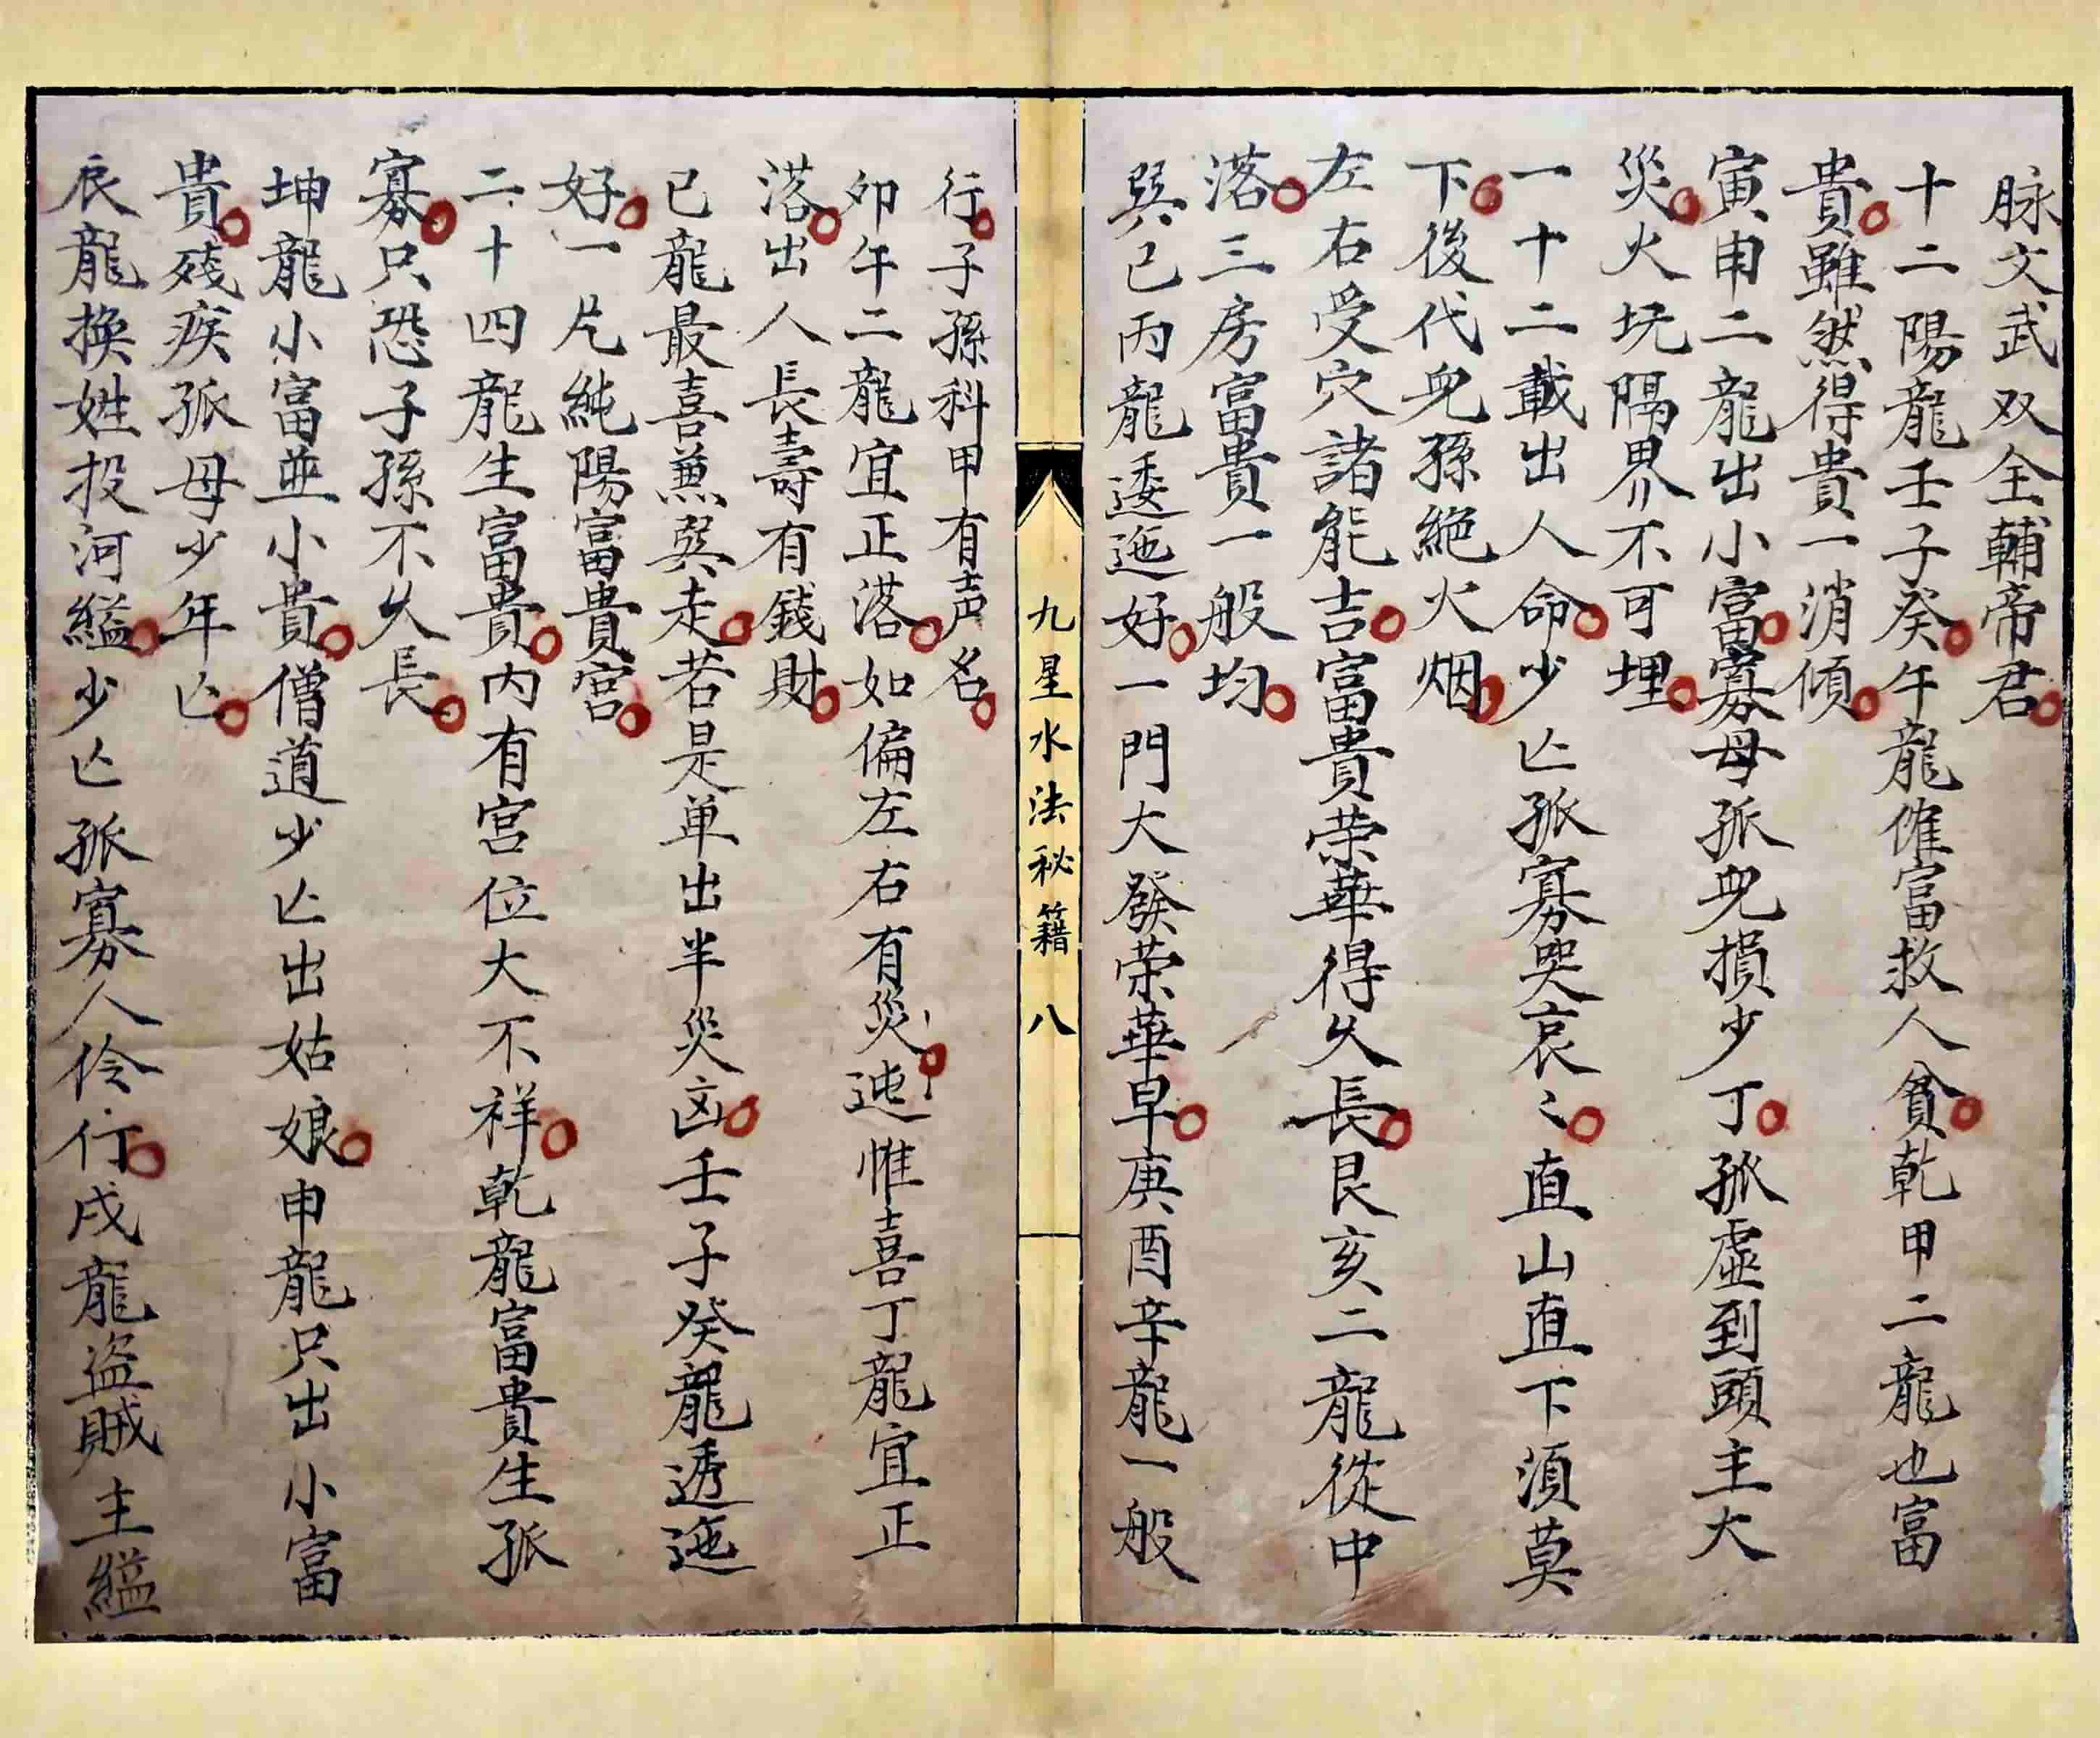 脉文武双全輔帝君
十二陽龍壬子癸午龍催富救人貧乾甲二龍也富
貴雖然得貴一消傾
寅申二龍出小富寡母孤兒損少丁孤虛到頭主大
災火坑隔界不可埋
一十二載出人命少亡孤寡哭哀〻直山直下須莫
下後代兒孫絶火烟
左右受穴諸能吉富貴荣華得久長艮亥二龍從中
落三房富貴一般均
巽巳丙龍逶迤好一門大發荣華早庚酉辛龍一般
九星水法秘籍 八
行子孫科甲有声名
卯午二龍宜正落如偏左右有災迍惟喜丁龍宜正
落出人長壽有錢財
巳龍最喜兼巽走若是单出半災凶壬子癸龍透迤
好一片純陽富貴宮
二十四龍生富貴内有宫位大不祥乾龍富貴生孤
寡只恐子孫不久長
坤龍小富並小貴僧道少亡出姑娘申龍只出小富
貴殘疾孤母少年亡
辰龍换姓投河縊少亡孤寡人伶仃戌龍盗賊主縊